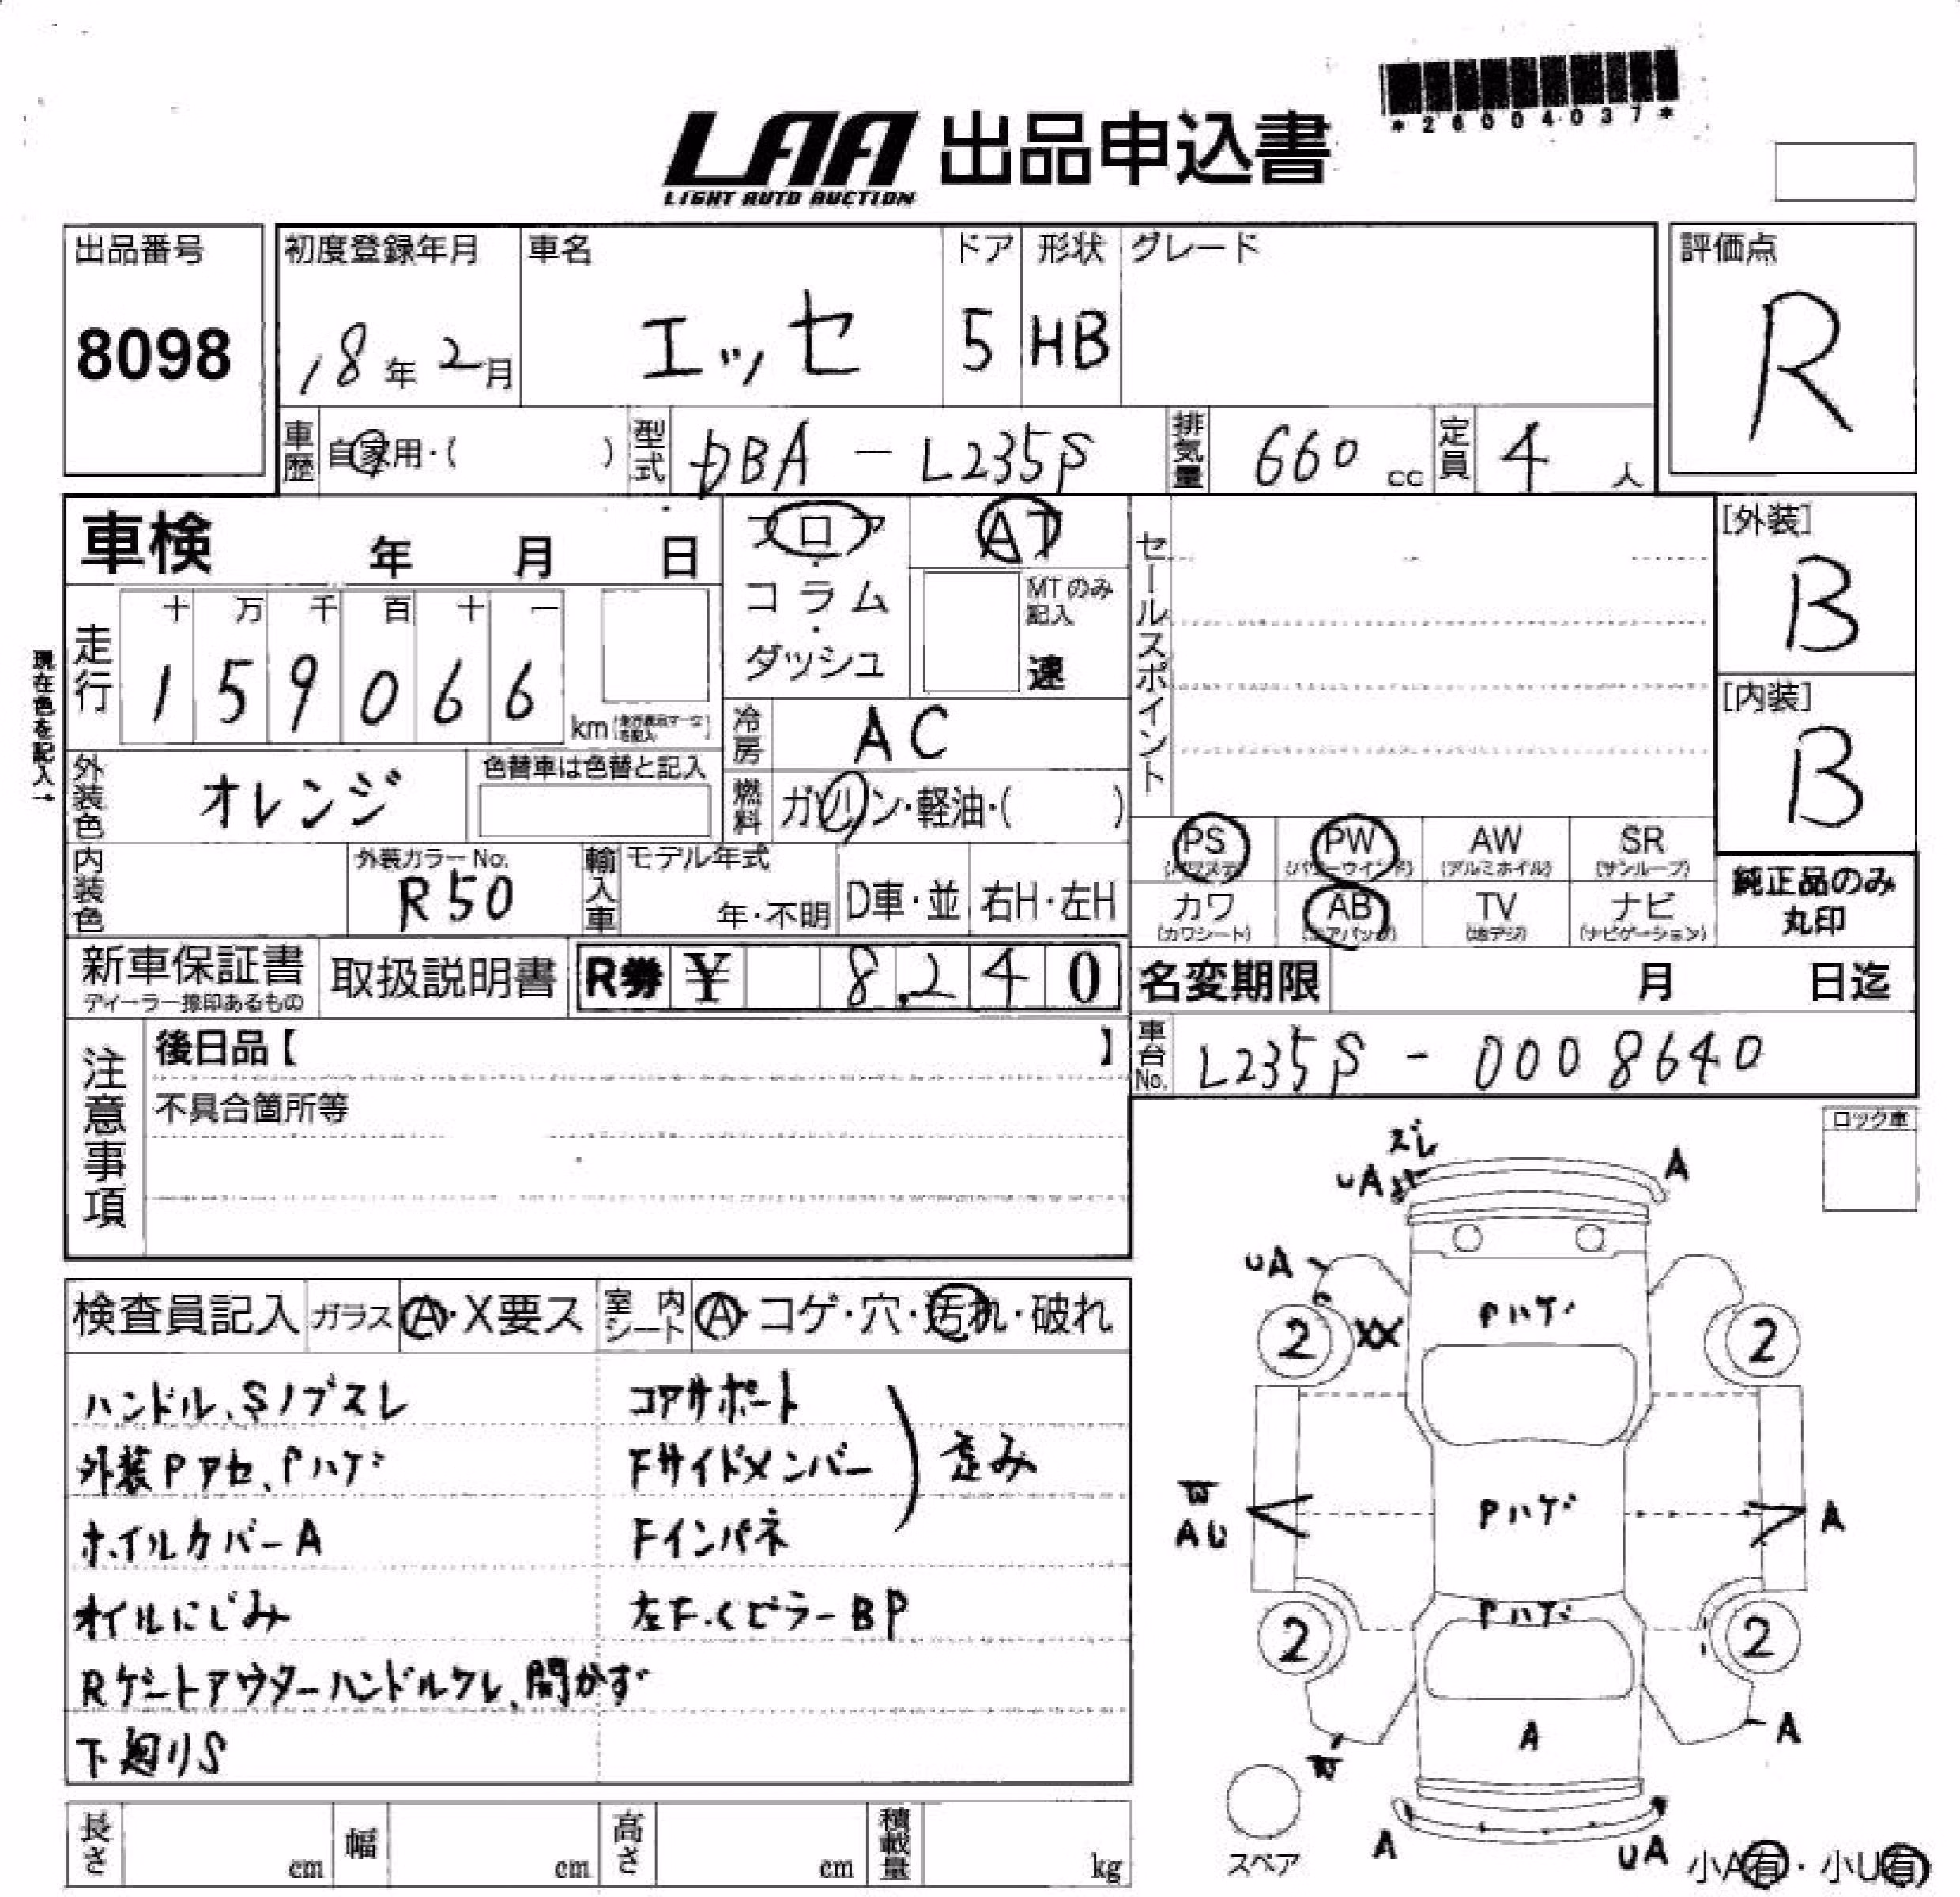 *26004037*
LAA 出品申込書
LIGHT AUTO AUCTION
出品番号 初度登録年月 車名 ドア 形状 グレード 評価点
8098 18年 2月 エッセ 5 HB R
車歴 自家用・( ) 型式 DBA - L235S 排気量 660 cc 定員 4 人
車検 年 月 日 フロア AT [外装]
・
コラム MTのみ記入 B
・
ダッシュ 速
セールスポイント
現在色を記入→
走行 十 万 千 百 十 一
1 5 9 0 6 6 km
[内装]
B
冷房 AC
外装色 オレンジ 色替車は色替と記入
燃料 ガソリン・軽油・( )
PS PW AW SR
(パワステ) (パワーウインド) (アルミホイル) (サンルーフ)
カワ AB TV ナビ
(カワシート) (エアバッグ) (地デジ) (ナビゲーション)
純正品のみ
丸印
内装色 外装カラーNo. R50 輸入車 モデル年式 年・不明 D車・並 右H・左H
新車保証書 取扱説明書 R券 ¥ 8,240 名変期限 月 日迄
ディーラー捺印あるもの
車台No. L235S - 0008640
注意事項 後日品【 】
不具合箇所等
ロック車
検査員記入 ガラス A・X要ス 室内シート A・コゲ・穴・汚れ・破れ
ハンドル、Sノブスレ コアサポート
外装Pアセ、Pハゲ Fサイドメンバー 歪み
ホイルカバーA Fインパネ
オイルにじみ 左F.くピラーBP
Rゲートアウターハンドルワレ、開かず
下廻りS
ズレ
UA A
UA
Pハゲ
2 XX 2
W
AU Pハゲ A
Pハゲ
2 2
A A
W
A UA
スペア
小A有・小U有
長さ cm 幅 cm 高さ cm 積載量 kg